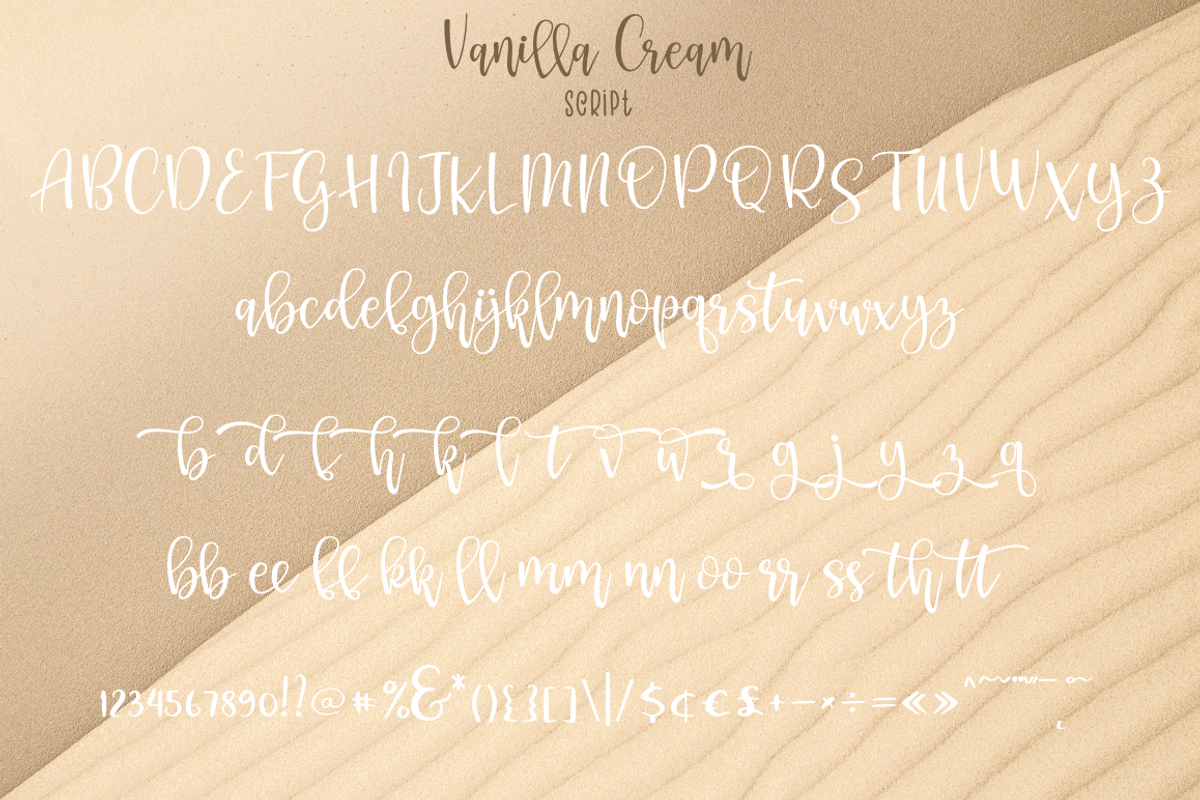 Vanilla Cream
script
ABCDEFGHIJKLMNOPQRSTUVWXYZ
abcdefghijklmnopqrstuvwxyz
b d f h k l t v w r g j y z q
bb ee ff kk ll mm nn oo rr ss th tt
1234567890!?@#%&*(){}[]\|/$¢€£+−×÷=«»